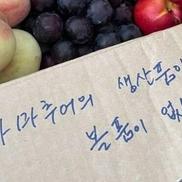 마추어의 생산품이
볼품이 없